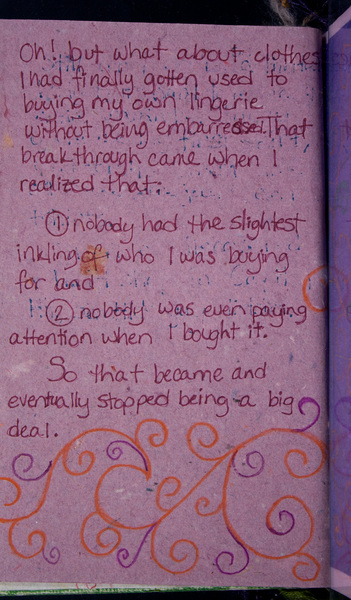 Oh! but what about clothes
I had finally gotten used to
buying my own lingerie
without being embarressed. That
breakthrough came when I
realized that:
① nobody had the slightest
inkling of who I was buying
for and
② nobody was even paying
attention when I bought it.
So that became and
eventually stopped being a big
deal.